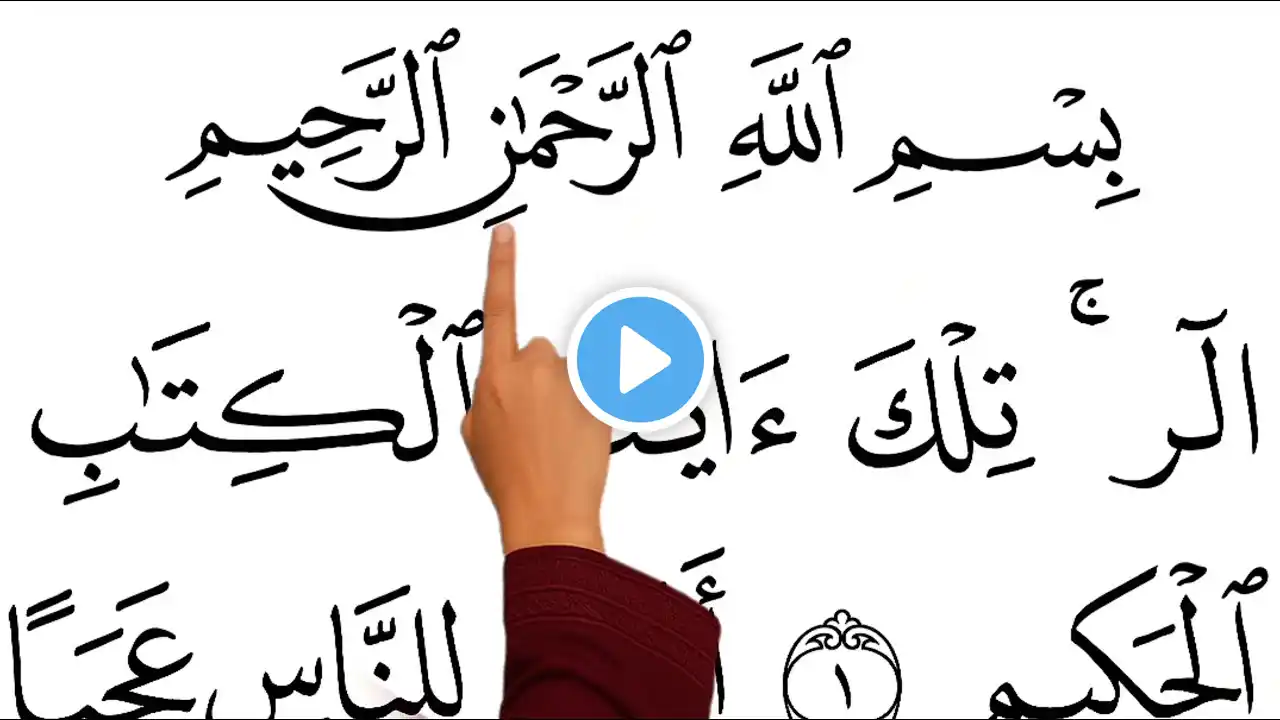 بِسْمِ ٱللَّهِ ٱلرَّحْمَٰنِ ٱلرَّحِيمِ
الٓر ۚ تِلْكَ ٱلْكِتَٰبِ
ٱلْحَكِيمِ ١ لِلنَّاسِ عَجَبًا